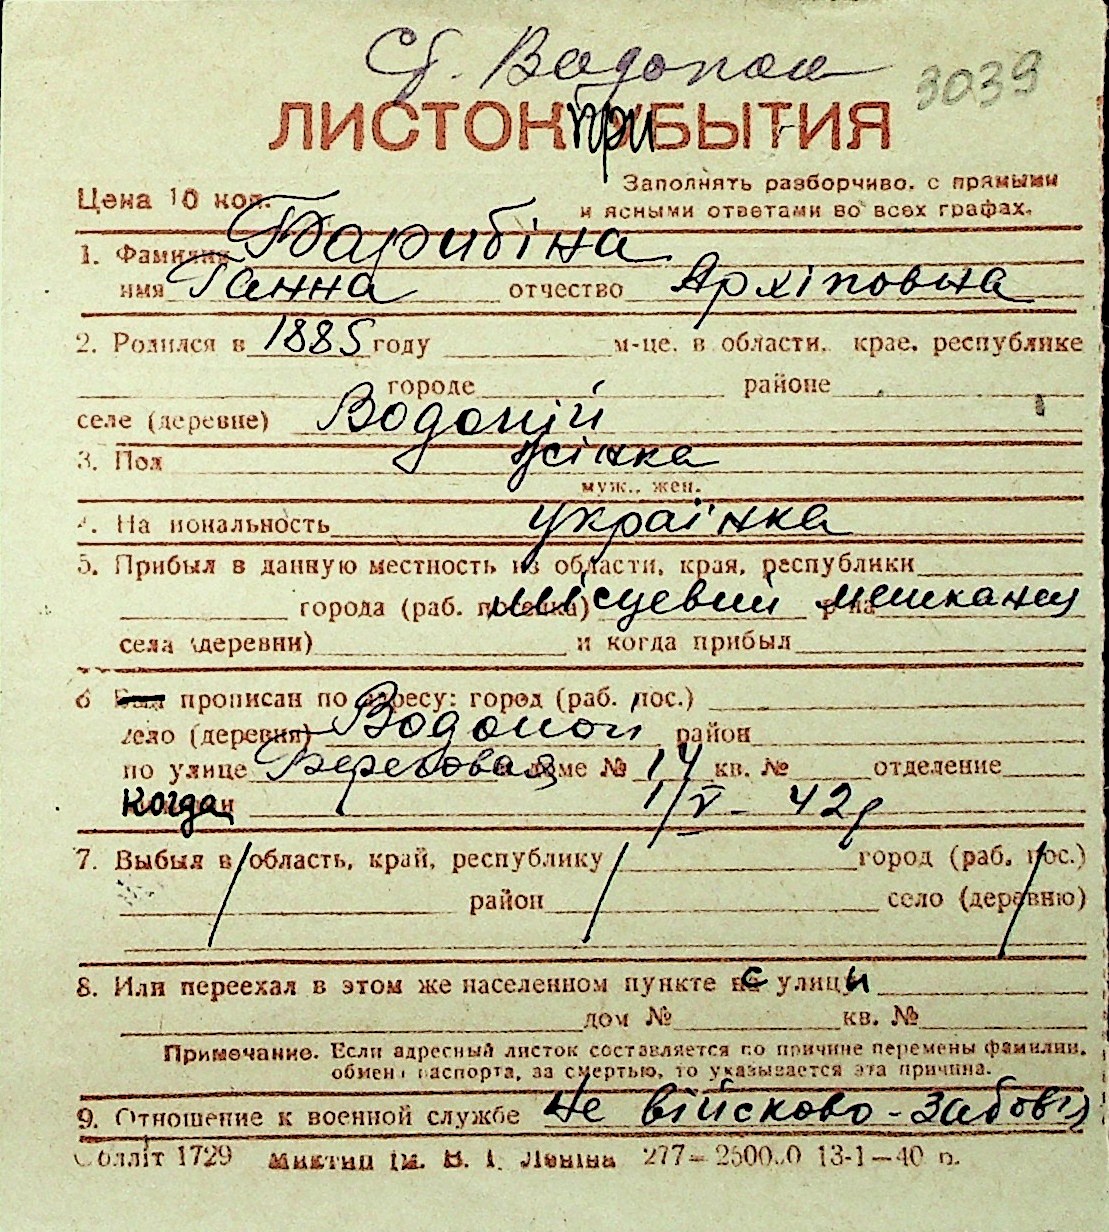 Сб. Водопой
3039
ЛИСТОК при БЫТИЯ
Цена 10 коп.
Заполнять разборчиво, с прямыми
и ясными ответами во всех графах.
1. Фамилия Гарибіна
имя Ганна отчество Архіповна
2. Родился в 1885 году м-це, в области, крае, республике
городе районе
селе (деревне) Водопій
3. Пол жінка
муж., жен.
4. Национальность українка
5. Прибыл в данную местность из области, края, республики
города (раб. поселка) р-на місцевий мешканец
села (деревни) и когда прибыл
6 Был прописан по адресу: город (раб. пос.)
село (деревня) Водопой район
по улице Береговая доме № 14 кв. № отделение
когда 1/V - 42 р
7. Выбыл в область, край, республику город (раб. пос.)
район село (деревню)
8. Или переехал в этом же населенном пункте с улицы
дом № кв. №
Примечание. Если адресный листок составляется по причине перемены фамилии,
обмена паспорта, за смертью, то указывается эта причина.
9. Отношение к военной службе не військово-забов'яз
Облліт 1729 Миктип ім. В. І. Леніна 277—2500.0 13-1—40 р.